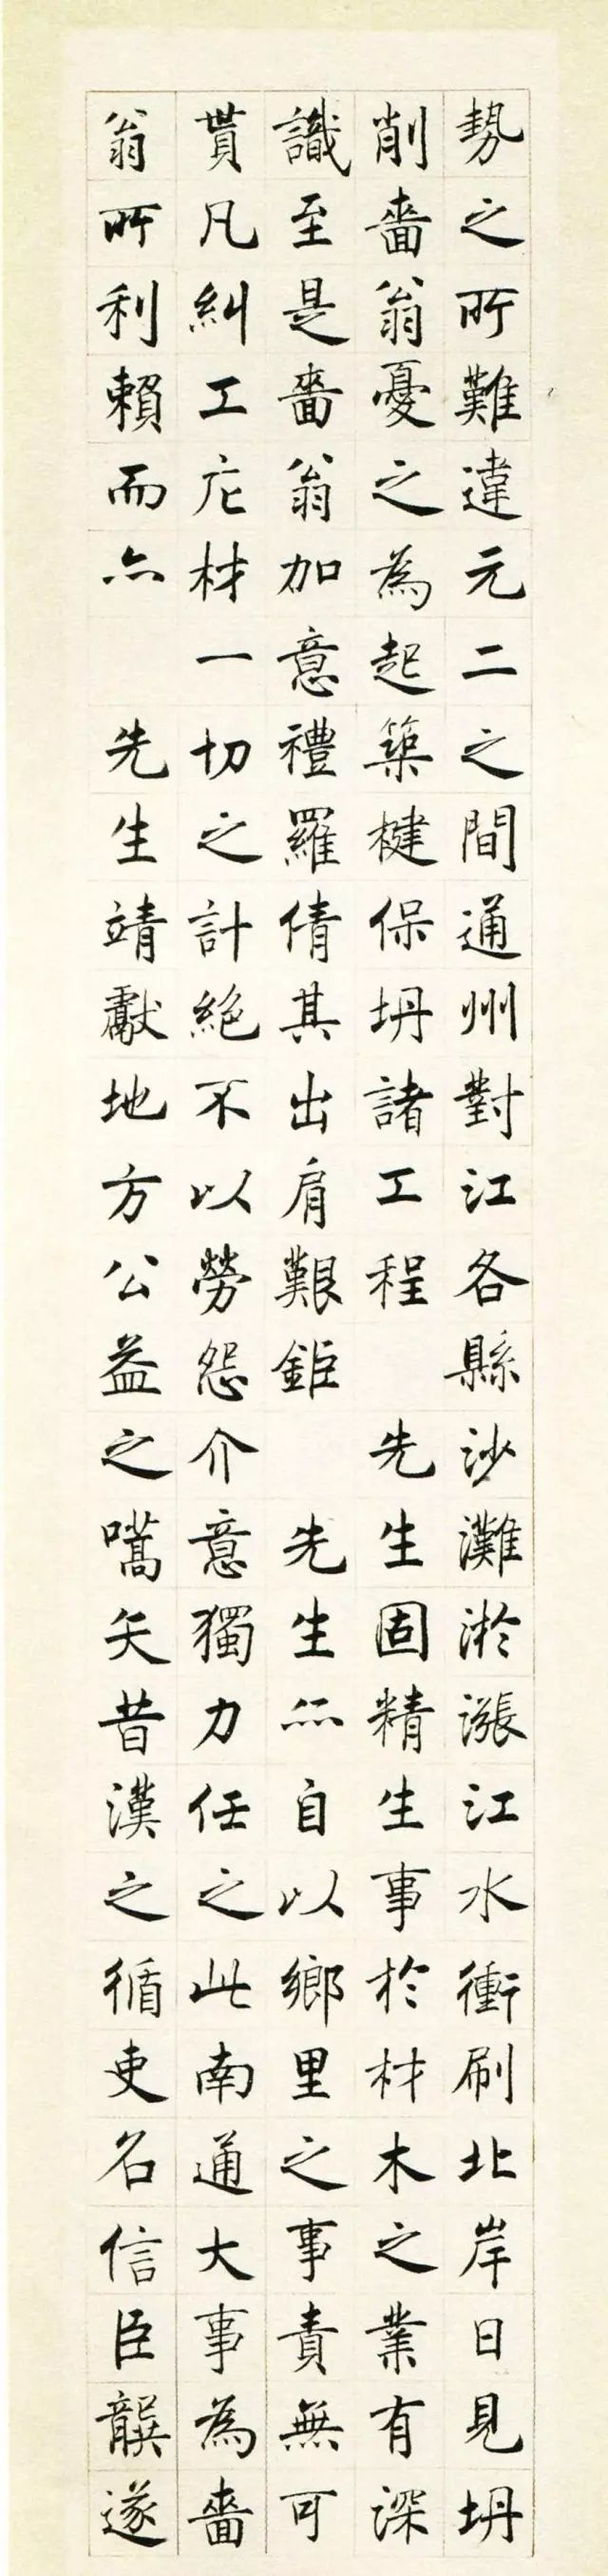 勢之所難違元二之間通州對江各縣沙灘淤漲江水衝刷北岸日見坍
削嗇翁憂之為起築楗保坍諸工程　先生固精生事於材木之業有深
識至是嗇翁加意禮羅倩其出肩艱鉅　先生亦自以鄉里之事責無可
貰凡糾工庀材一切之計絕不以勞怨介意獨力任之此南通大事為嗇
翁所利賴而亦　先生靖獻地方公益之嚆矢昔漢之循吏名信臣龔遂